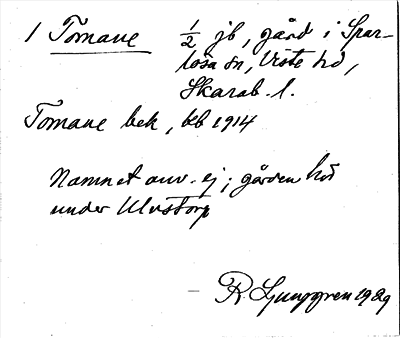 1 Tomane ½ jb, gård i Spar-
lösa sn, Viste hd,
Skarab. l.
Tomane bek, beb 1914
Namnet anv. ej; gården hör
under Ulvstorp
R. Ljunggren 1989